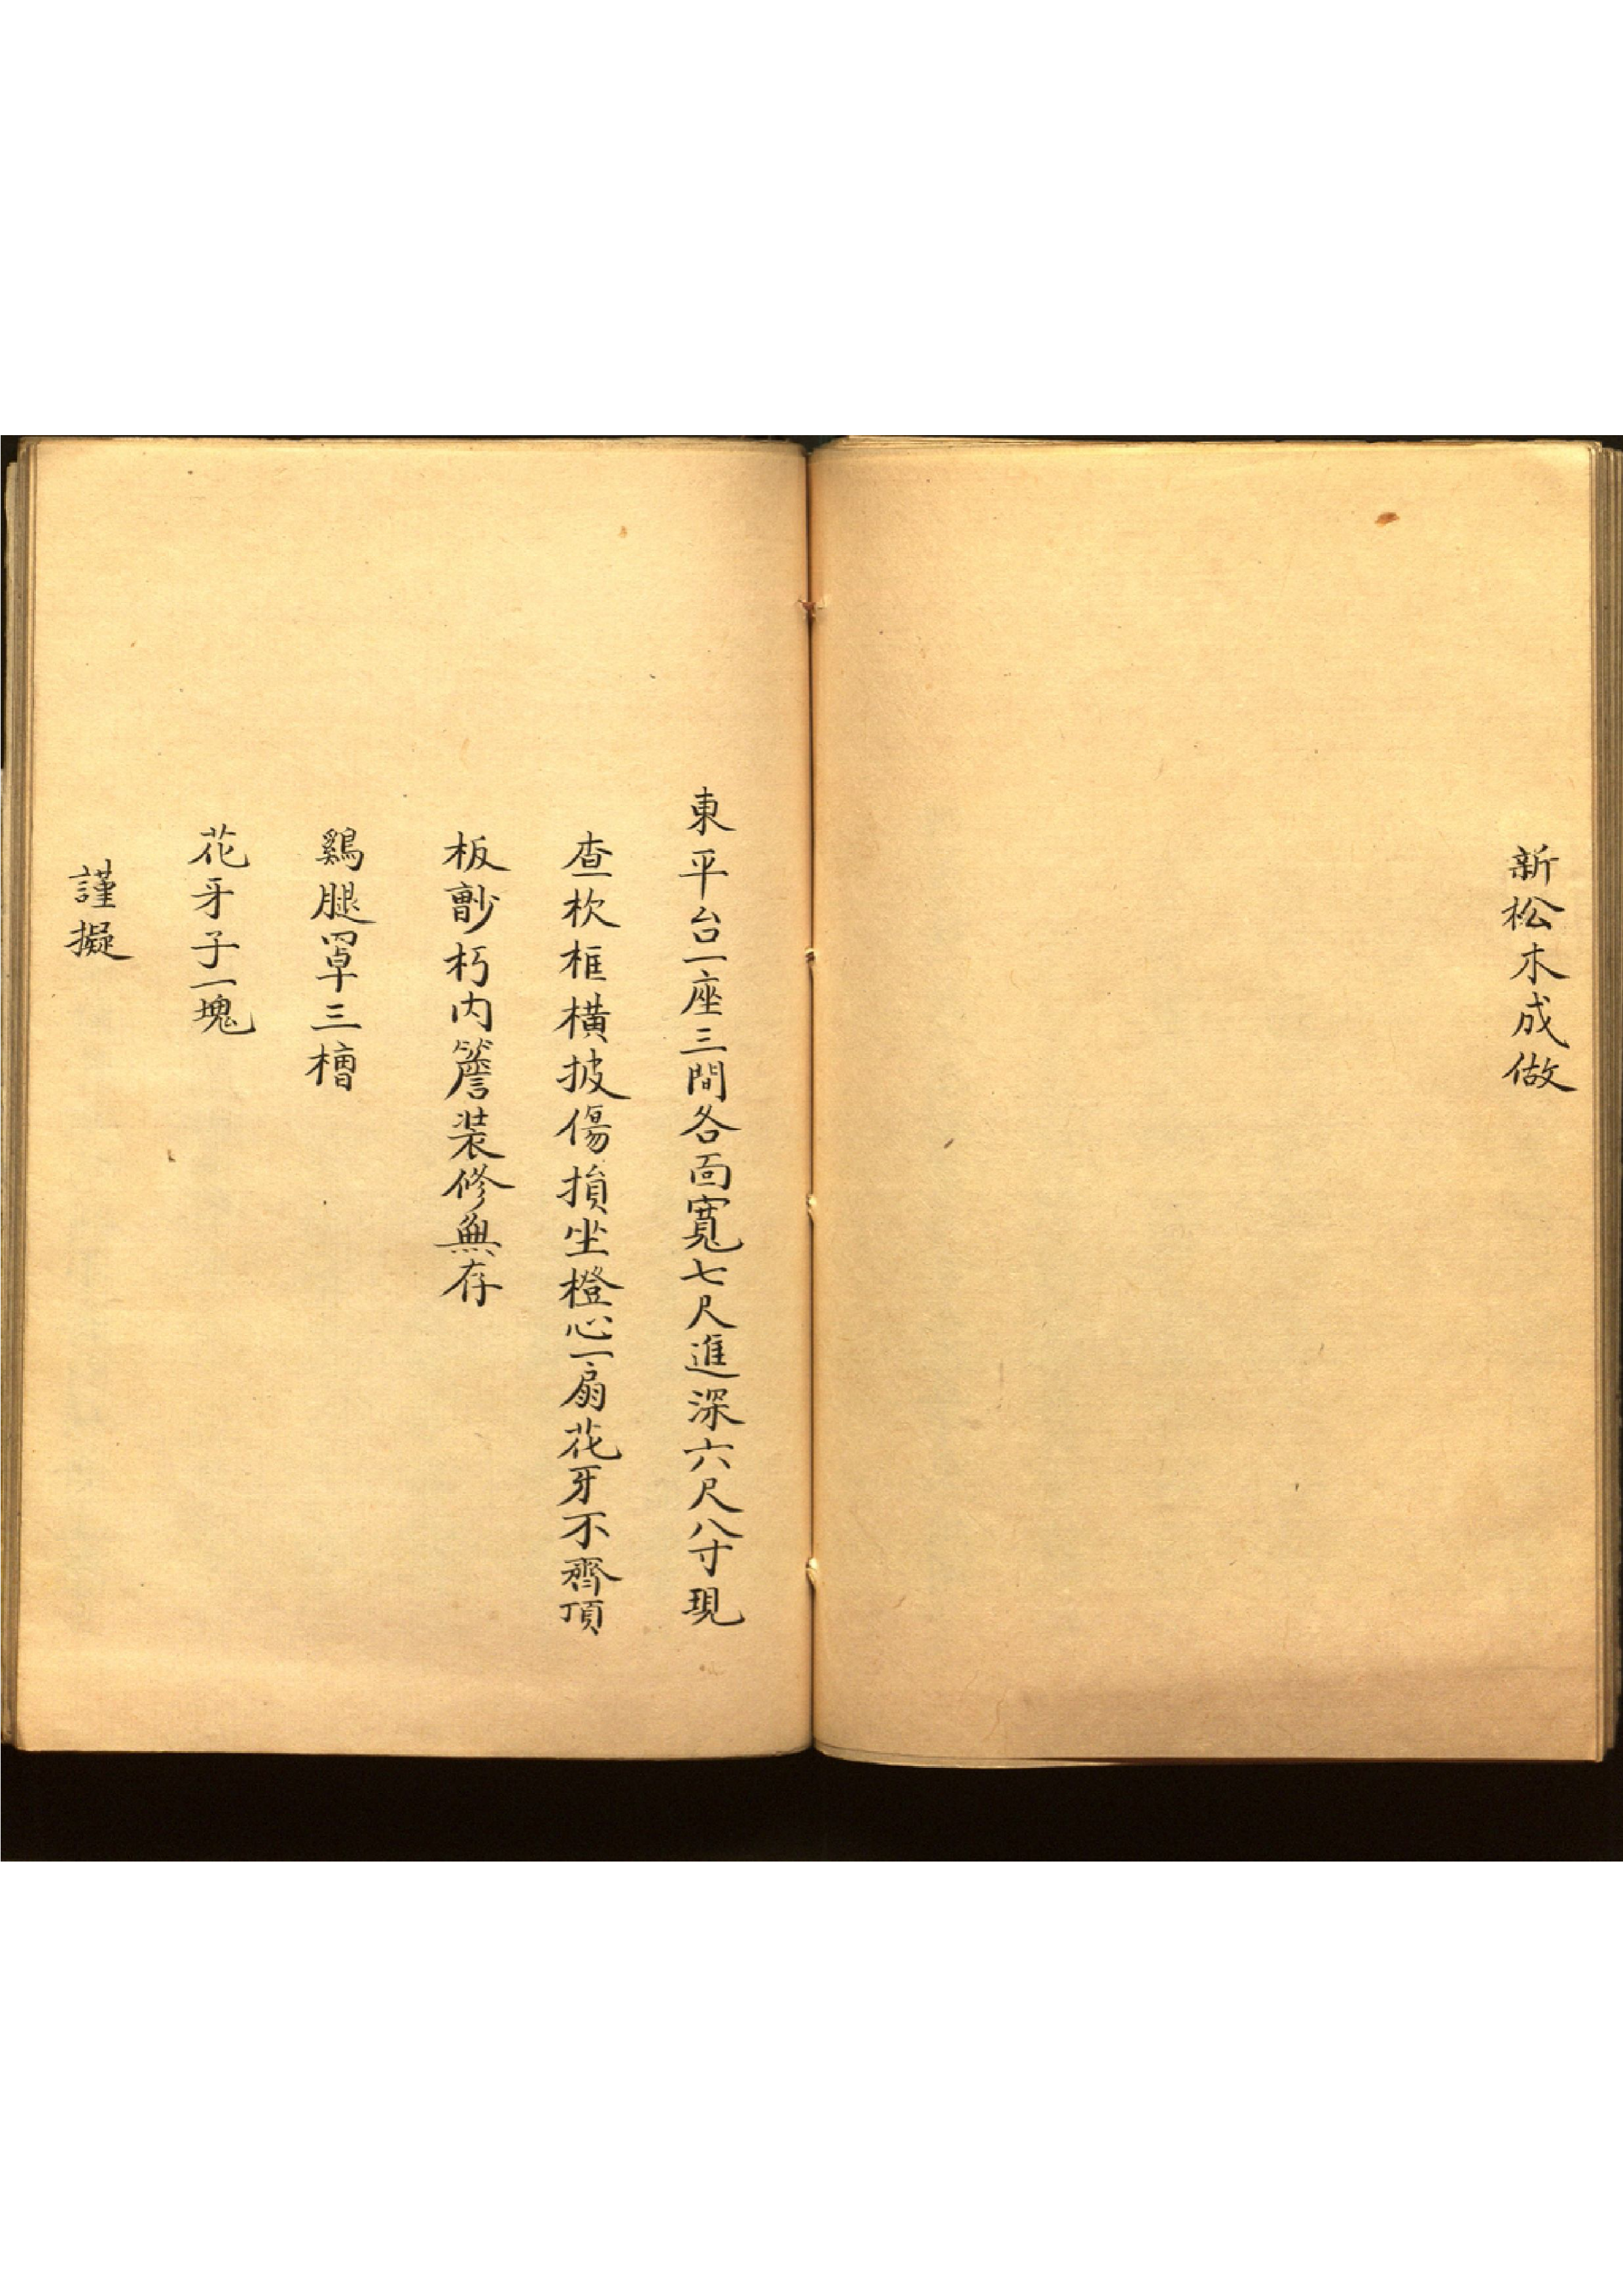 新松木成做
東平台一座三間各面寬七尺進深六尺八寸現
查杴框橫披傷損坐橙心一扇花牙不齊頂
板朽内簷裝修無存
鷄腿罩三槽
花牙子一塊
謹擬